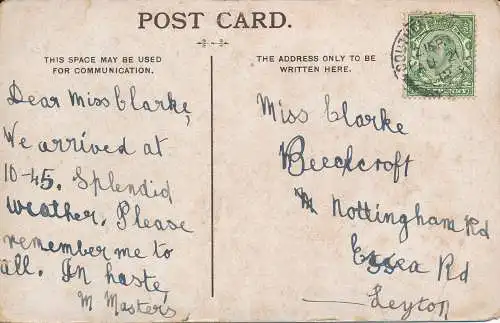 POST CARD.
THIS SPACE MAY BE USED
FOR COMMUNICATION.
THE ADDRESS ONLY TO BE
WRITTEN HERE.
Dear Miss Clarke,
We arrived at
10-45. Splendid
weather. Please
remember me to
all. In haste,
M Masters
Miss Clarke
Beechcroft
Nottingham Rd
Essex Rd
Leyton